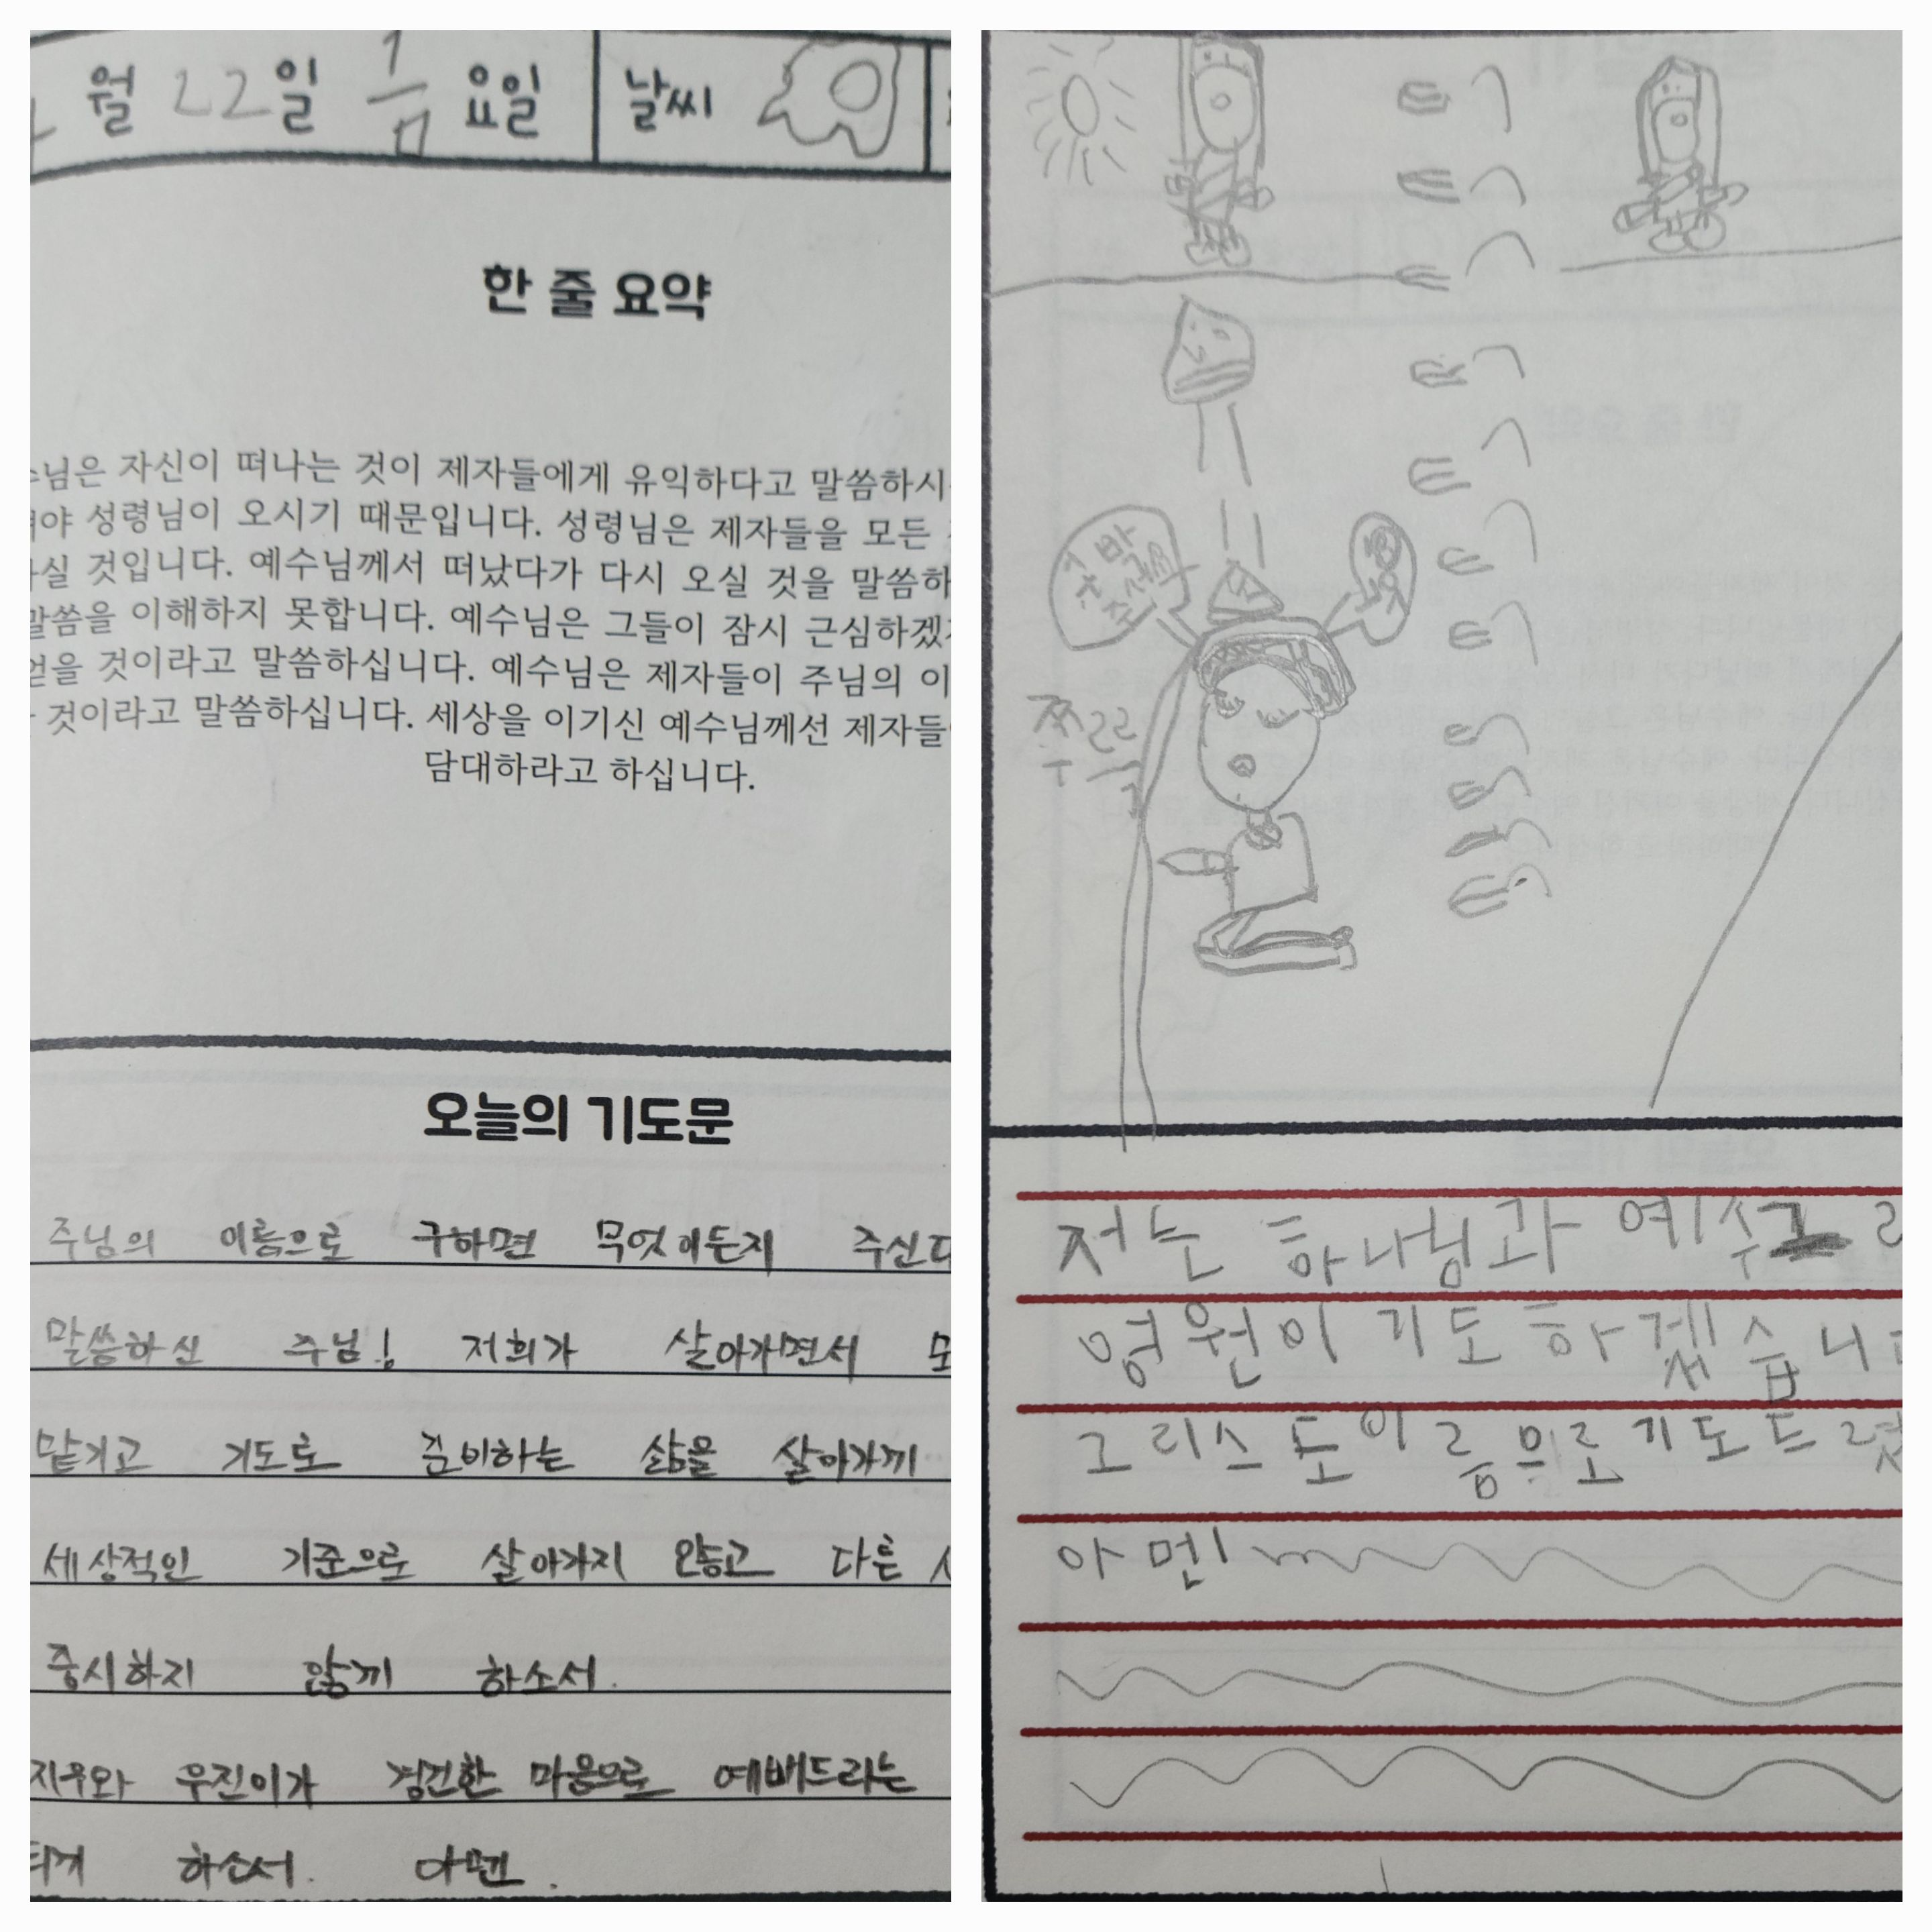 월 22일 금 요일 날씨
한 줄 요약
자신이 떠나는 것이 제자들에게 유익하다고
성령님이 오시기 때문입니다. 성령님은 제자들을 모든
것입니다. 예수님께서 떠났다가 다시 오실 것을
말씀을 이해하지 못합니다. 예수님은 그들이 잠시
것이라고 말씀하십니다. 예수님은 제자들이 주님의
것이라고 말씀하십니다. 세상을 이기신 예수님께선
담대하라고 하십니다.
오늘의 기도문
주님의 이름으로 구하면 무엇이든지
말씀하신 주님! 저희가 살아가면서
맡기고 기도로 준비하는 삶을 살아가끼
세상적인 기준으로 살아가지 않고 다른
중시하지 않끼 하소서.
지우와 우진이가 경건한 마음으로 예배드리는
하소서. 아멘.
주르륵
저는 하나님과 예수
영원이 기도하겠습니
그리스도 이름으로 기도드
아멘!